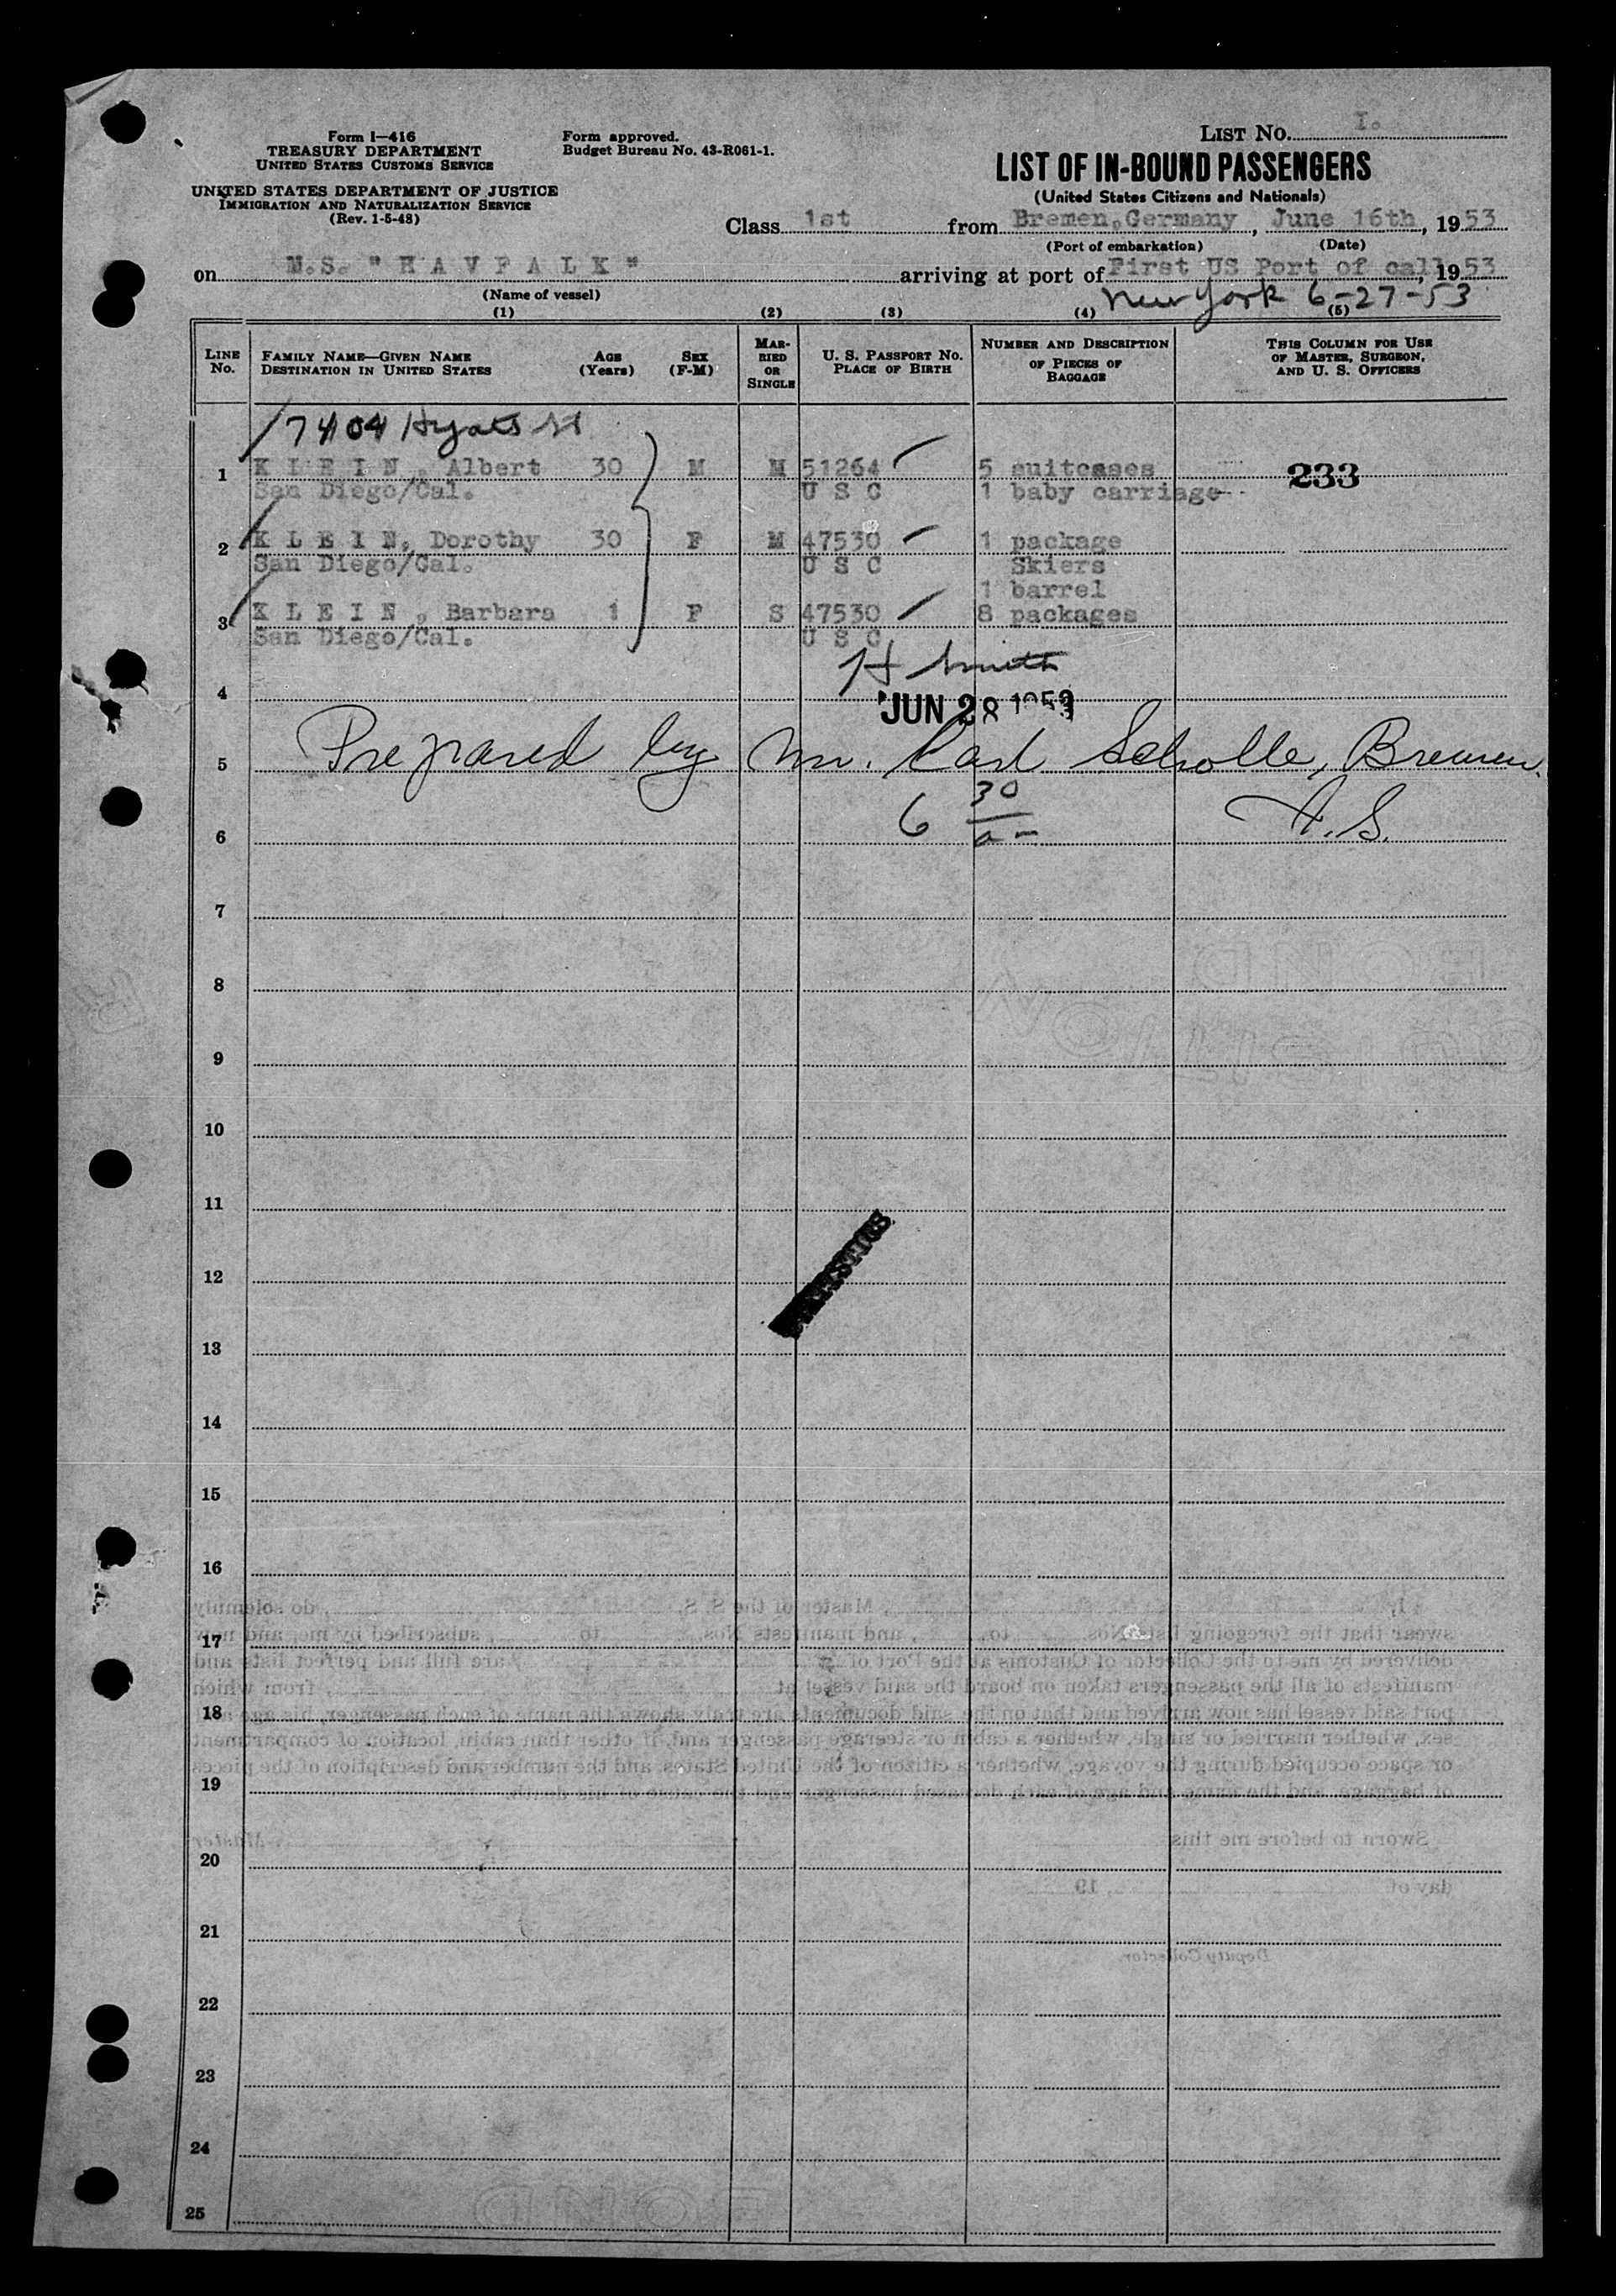 Form I—416
TREASURY DEPARTMENT
UNITED STATES CUSTOMS SERVICE
UNITED STATES DEPARTMENT OF JUSTICE
IMMIGRATION AND NATURALIZATION SERVICE
(Rev. 1-5-48)
Form approved.
Budget Bureau No. 43-R061-1.
LIST NO. I.
LIST OF IN-BOUND PASSENGERS
(United States Citizens and Nationals)
Class 1st from Bremen, Germany, June 16th, 1953
(Port of embarkation) (Date)
on M.S. "HAVFALK" arriving at port of First US Port of call, 1953
(Name of vessel) New York 6-27-53
(1) (2) (3) (4) (5)
LINE No. FAMILY NAME—GIVEN NAME DESTINATION IN UNITED STATES AGE (Years) SEX (F-M) MARRIED OR SINGLE U. S. PASSPORT NO. PLACE OF BIRTH NUMBER AND DESCRIPTION OF PIECES OF BAGGAGE THIS COLUMN FOR USE OF MASTER, SURGEON, AND U. S. OFFICERS
7404 Hyatt St
1 KLEIN, Albert 30 M M 51264 5 suitcases 233
San Diego/Cal. U S C 1 baby carriage
2 KLEIN, Dorothy 30 F M 47530 1 package
San Diego/Cal. U S C Skiers
1 barrel
3 KLEIN, Barbara 1 F S 47530 8 packages
San Diego/Cal. U S C
H Smith
4 JUN 28 1953
5 Prepared by Mr. Carl Scholle, Bremen.
6 6 30/a- H.S.
7
8
9
10
11
12
13
14
15
16
17
18
19
20
21
22
23
24
25